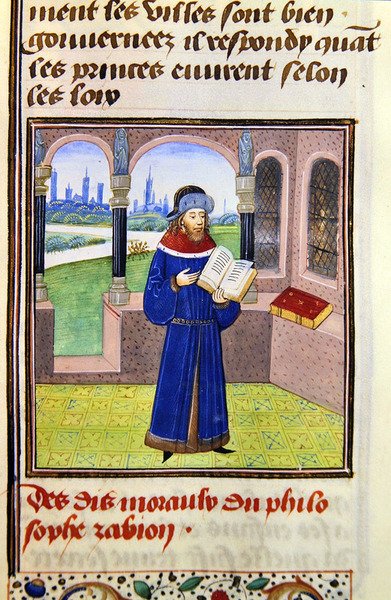 ment les villes sont bien ·
gouuerneez il respondy quãt
les princes viurent selon
les loix
Des dis moraulx du philo
sophe zabion ·